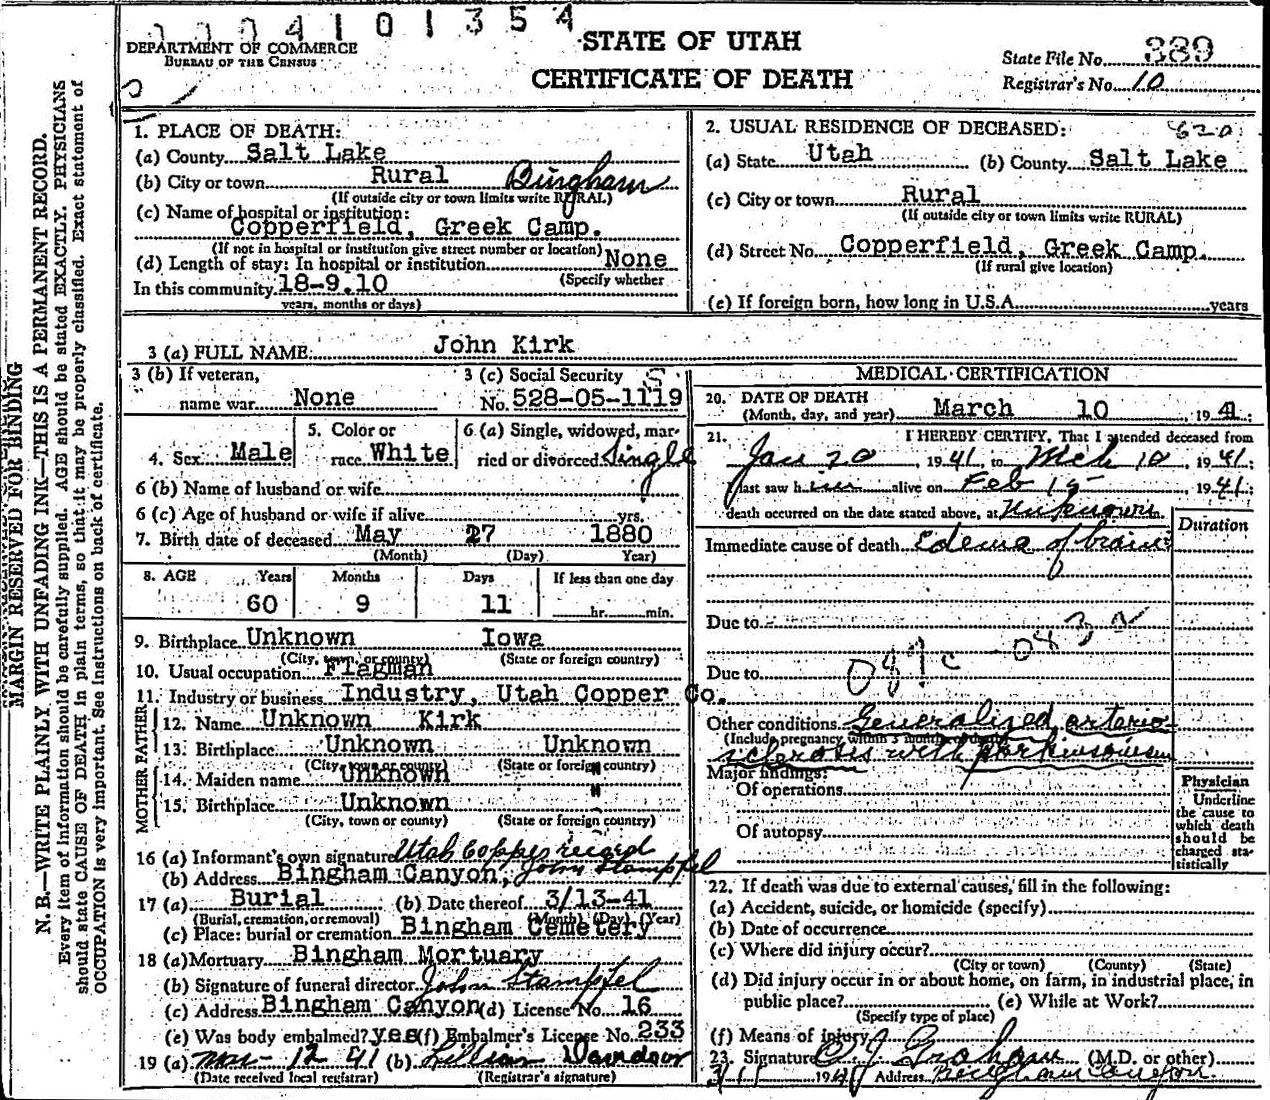 0004101354
DEPARTMENT OF COMMERCE
BUREAU OF THE CENSUS
STATE OF UTAH
CERTIFICATE OF DEATH
State File No. 389
Registrar's No. 10
MARGIN RESERVED FOR BINDING
N. B.—WRITE PLAINLY WITH UNFADING INK—THIS IS A PERMANENT RECORD.
Every item of information should be carefully supplied. AGE should be stated EXACTLY. PHYSICIANS
should state CAUSE OF DEATH in plain terms, so that it may be properly classified. Exact statement of
OCCUPATION is very important. See instructions on back of certificate.
1. PLACE OF DEATH:
(a) County Salt Lake
(b) City or town Rural Bingham
(If outside city or town limits write RURAL)
(c) Name of hospital or institution:
Copperfield, Greek Camp.
(If not in hospital or institution give street number or location)
(d) Length of stay: In hospital or institution None
(Specify whether
In this community 18-9.10
years, months or days)
2. USUAL RESIDENCE OF DECEASED: 620
(a) State Utah (b) County Salt Lake
(c) City or town Rural
(If outside city or town limits write RURAL)
(d) Street No. Copperfield, Greek Camp.
(If rural give location)
(e) If foreign born, how long in U.S.A. years
3 (a) FULL NAME John Kirk
3 (b) If veteran,
name war None
3 (c) Social Security S
No. 528-05-1119
4. Sex Male
5. Color or
race White
6 (a) Single, widowed, mar-
ried or divorced Single
6 (b) Name of husband or wife
6 (c) Age of husband or wife if alive yrs.
7. Birth date of deceased May 27 1880
(Month) (Day) Year)
8. AGE Years Months Days If less than one day
60 9 11 hr. min.
9. Birthplace Unknown Iowa
(City, town, or county) (State or foreign country)
10. Usual occupation Flagman
11. Industry or business Industry, Utah Copper Co.
FATHER
12. Name Unknown Kirk
13. Birthplace Unknown Unknown
(City, town or county) (State or foreign country)
MOTHER
14. Maiden name Unknown "
15. Birthplace Unknown "
(City, town or county) (State or foreign country)
16 (a) Informant's own signature Utah Copper record
(b) Address Bingham Canyon, John Stampfel
17 (a) Burial (b) Date thereof 3/13-41
(Burial, cremation, or removal) (Month) (Day) (Year)
(c) Place: burial or cremation Bingham Cemetery
18 (a) Mortuary Bingham Mortuary
(b) Signature of funeral director John Stampfel
(c) Address Bingham Canyon (d) License No. 16
(e) Was body embalmed? yes (f) Embalmer's License No. 233
19 (a) Mar - 12 41 (b) Lillian
(Date received local registrar) (Registrar's signature)
MEDICAL CERTIFICATION
20. DATE OF DEATH
(Month, day, and year) March 10, 1941;
21. I HEREBY CERTIFY, That I attended deceased from
Jan 20, 1941, to Mch 10, 1941;
last saw him alive on Feb 15 1941;
death occurred on the date stated above, at Unknown
Duration
Immediate cause of death Edema of brain
Due to
Due to 097c - 043
Other conditions Generalized arterio
(Include pregnancy within 3 months of death)
sclerosis with parkinsonism
Major findings:
Of operations
Of autopsy
Physician
Underline
the cause to
which death
should be
charged sta-
tistically
22. If death was due to external causes, fill in the following:
(a) Accident, suicide, or homicide (specify)
(b) Date of occurrence
(c) Where did injury occur?
(City or town) (County) (State)
(d) Did injury occur in or about home, on farm, in industrial place, in
public place? (e) While at Work?
(Specify type of place)
(f) Means of injury
23. Signature Graham (M.D. or other)
3/11 1941 Address Bingham Canyon